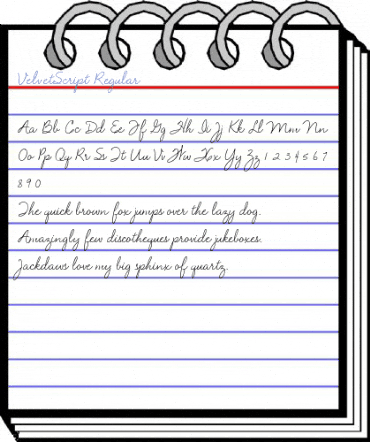 VelvetScript Regular
Aa Bb Cc Dd Ee Ff Gg Hh Ii Jj Kk Ll Mm Nn
Oo Pp Qq Rr Ss Tt Uu Vv Ww Xx Yy Zz 1 2 3 4 5 6 7
8 9 0
The quick brown fox jumps over the lazy dog.
Amazingly few discotheques provide jukeboxes.
Jackdaws love my big sphinx of quartz.